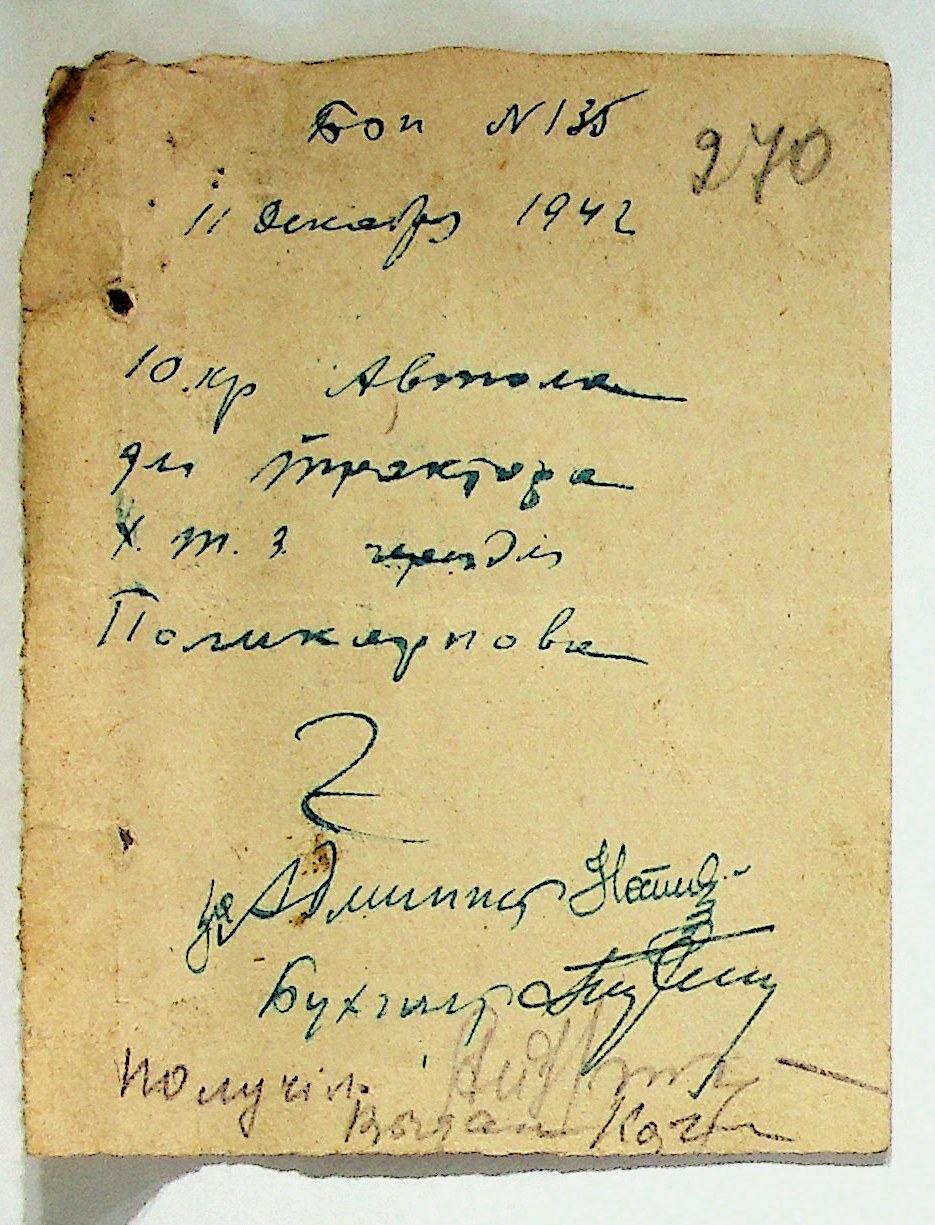 Бон N 135
270
11 декабря 1942
10 кр Автола
для трактора
Х. т. з.
Поликарпова
за Админист
Бухгалт
Получiл